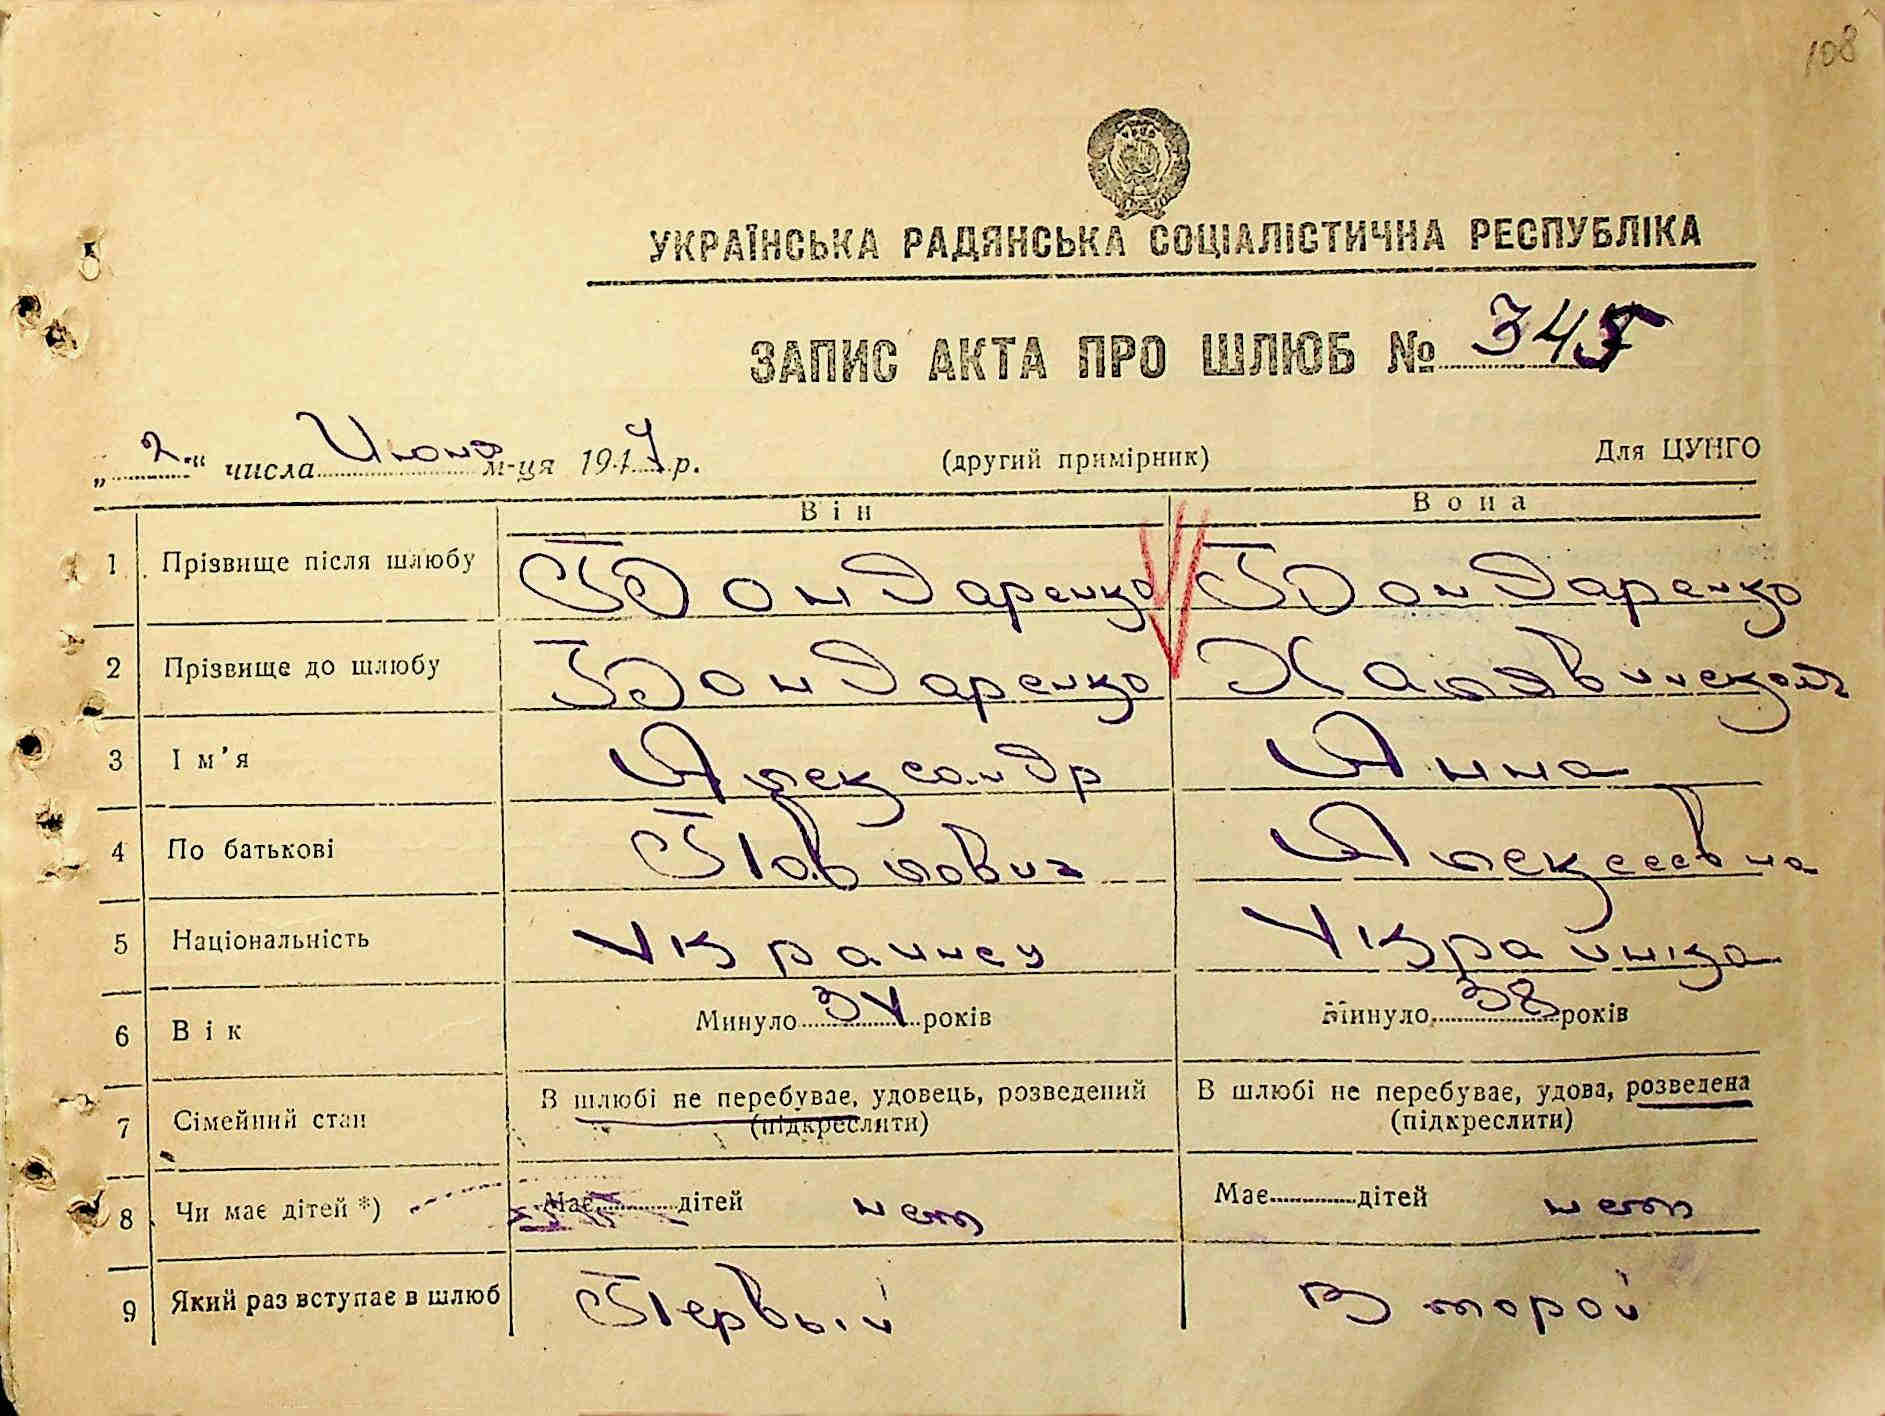 108
УКРАЇНСЬКА РАДЯНСЬКА СОЦІАЛІСТИЧНА РЕСПУБЛІКА
ЗАПИС АКТА ПРО ШЛЮБ № 345
„2" числа Июня м-ця 1947 р. (другий примірник) Для ЦУНГО
Він Вона
1 Прізвище після шлюбу Бондаренко Бондаренко
2 Прізвище до шлюбу Бондаренко
3 Ім'я Александр Анна
4 По батькові Павлович Алексеевна
5 Національність Украинец Украинка
6 Вік Минуло 34 років Минуло 38 років
7 Сімейний стан В шлюбі не перебуває, удовець, розведений В шлюбі не перебуває, удова, розведена
(підкреслити) (підкреслити)
8 Чи має дітей *) Має дітей нет Має дітей нет
9 Який раз вступає в шлюб Первый Второй